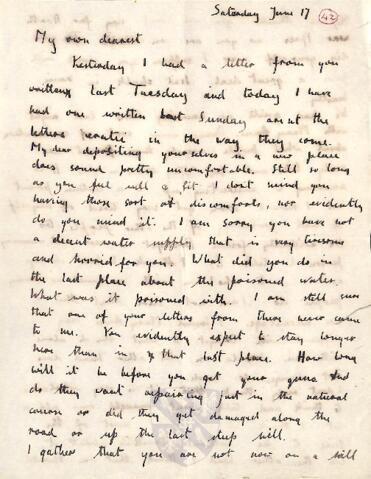 Saturday June 17 (42)
My own dearest
Yesterday I had a letter from you
written last Tuesday and today I have
had one written last Sunday arent the
letters erratic in the way they come.
My dear depositing yourselves in a new place
does sound pretty uncomfortable. Still so long
as you feel well & fit I dont mind you
having those sort of discomforts, nor evidently
do you mind it. I am sorry you have not
a decent water supply that is very tiresome
and horrid for you. What did you do in
the last place about the poisoned water.
What was it poisoned with. I am still sure
that one of your letters from there never came
to me. You evidently expect to stay longer
here than in that last place. How long
will it be before you get your guns And
do they want repairing just in the natural
course or did they get damaged along the
road or up the last steep hill.
I gather that you are not now on a hill